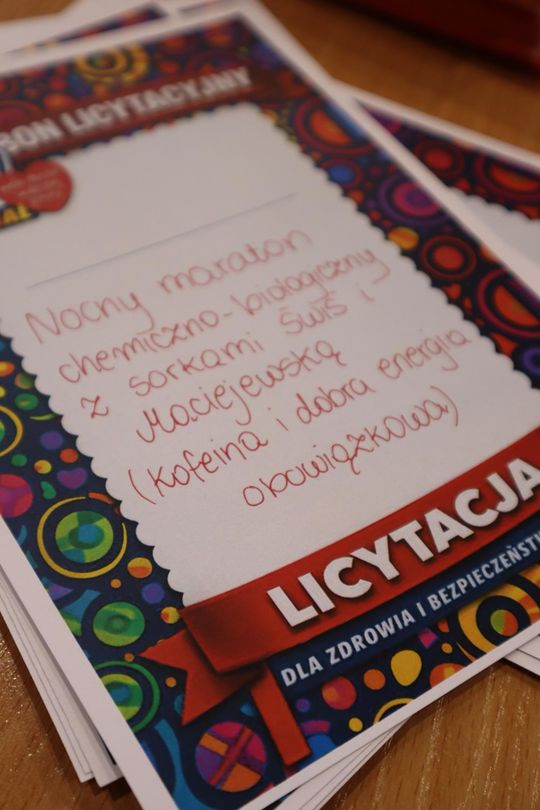 BON LICYTACYJNY
Nocny maraton
chemiczno-biologiczny
z sorkami Świś i
Maciejewską
(kofeina i dobra energia
obowiązkowa)
LICYTACJA
DLA ZDROWIA I BEZPIECZEŃSTW